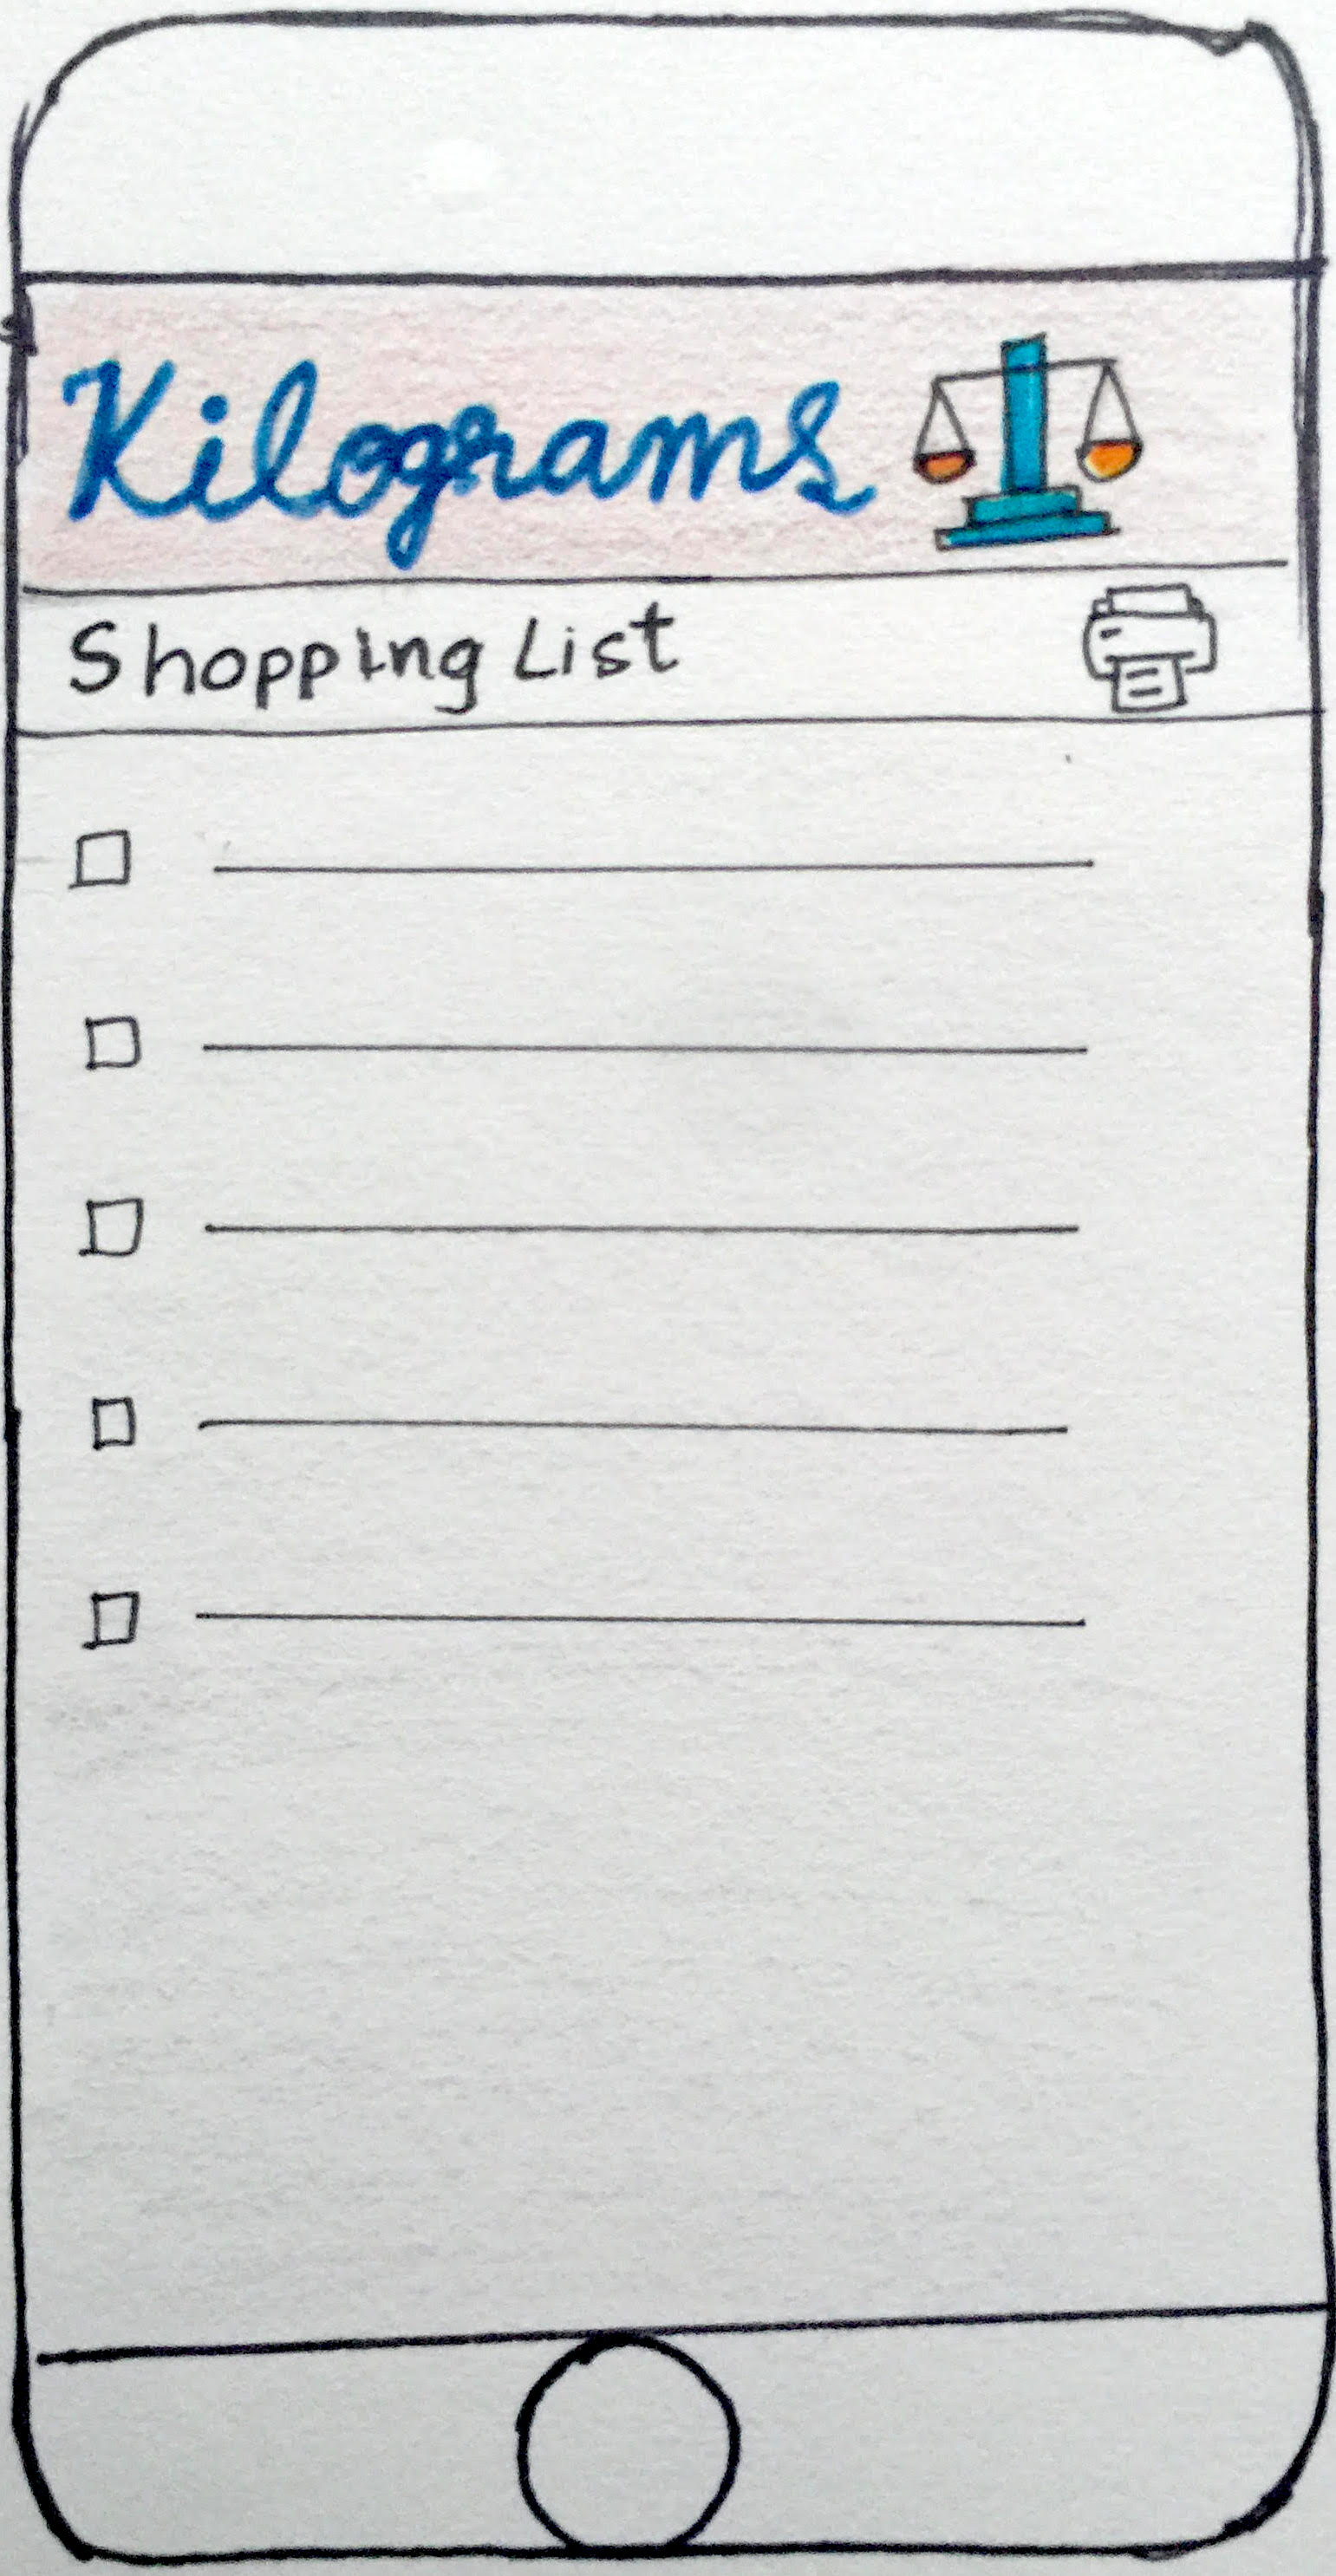 Kilograms
Shopping List